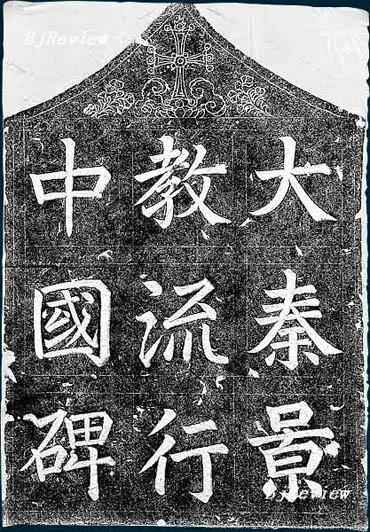 大秦景
教流行
中國碑
BjReview
BjReview